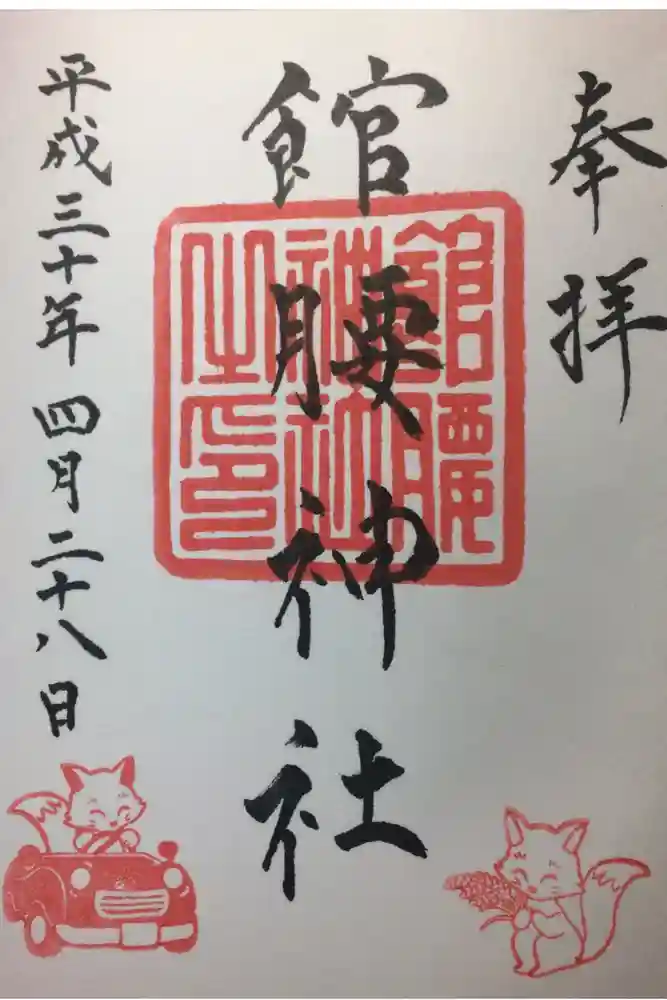 奉拝
館腰神社
館腰
神社
之印
平成三十年四月二十八日